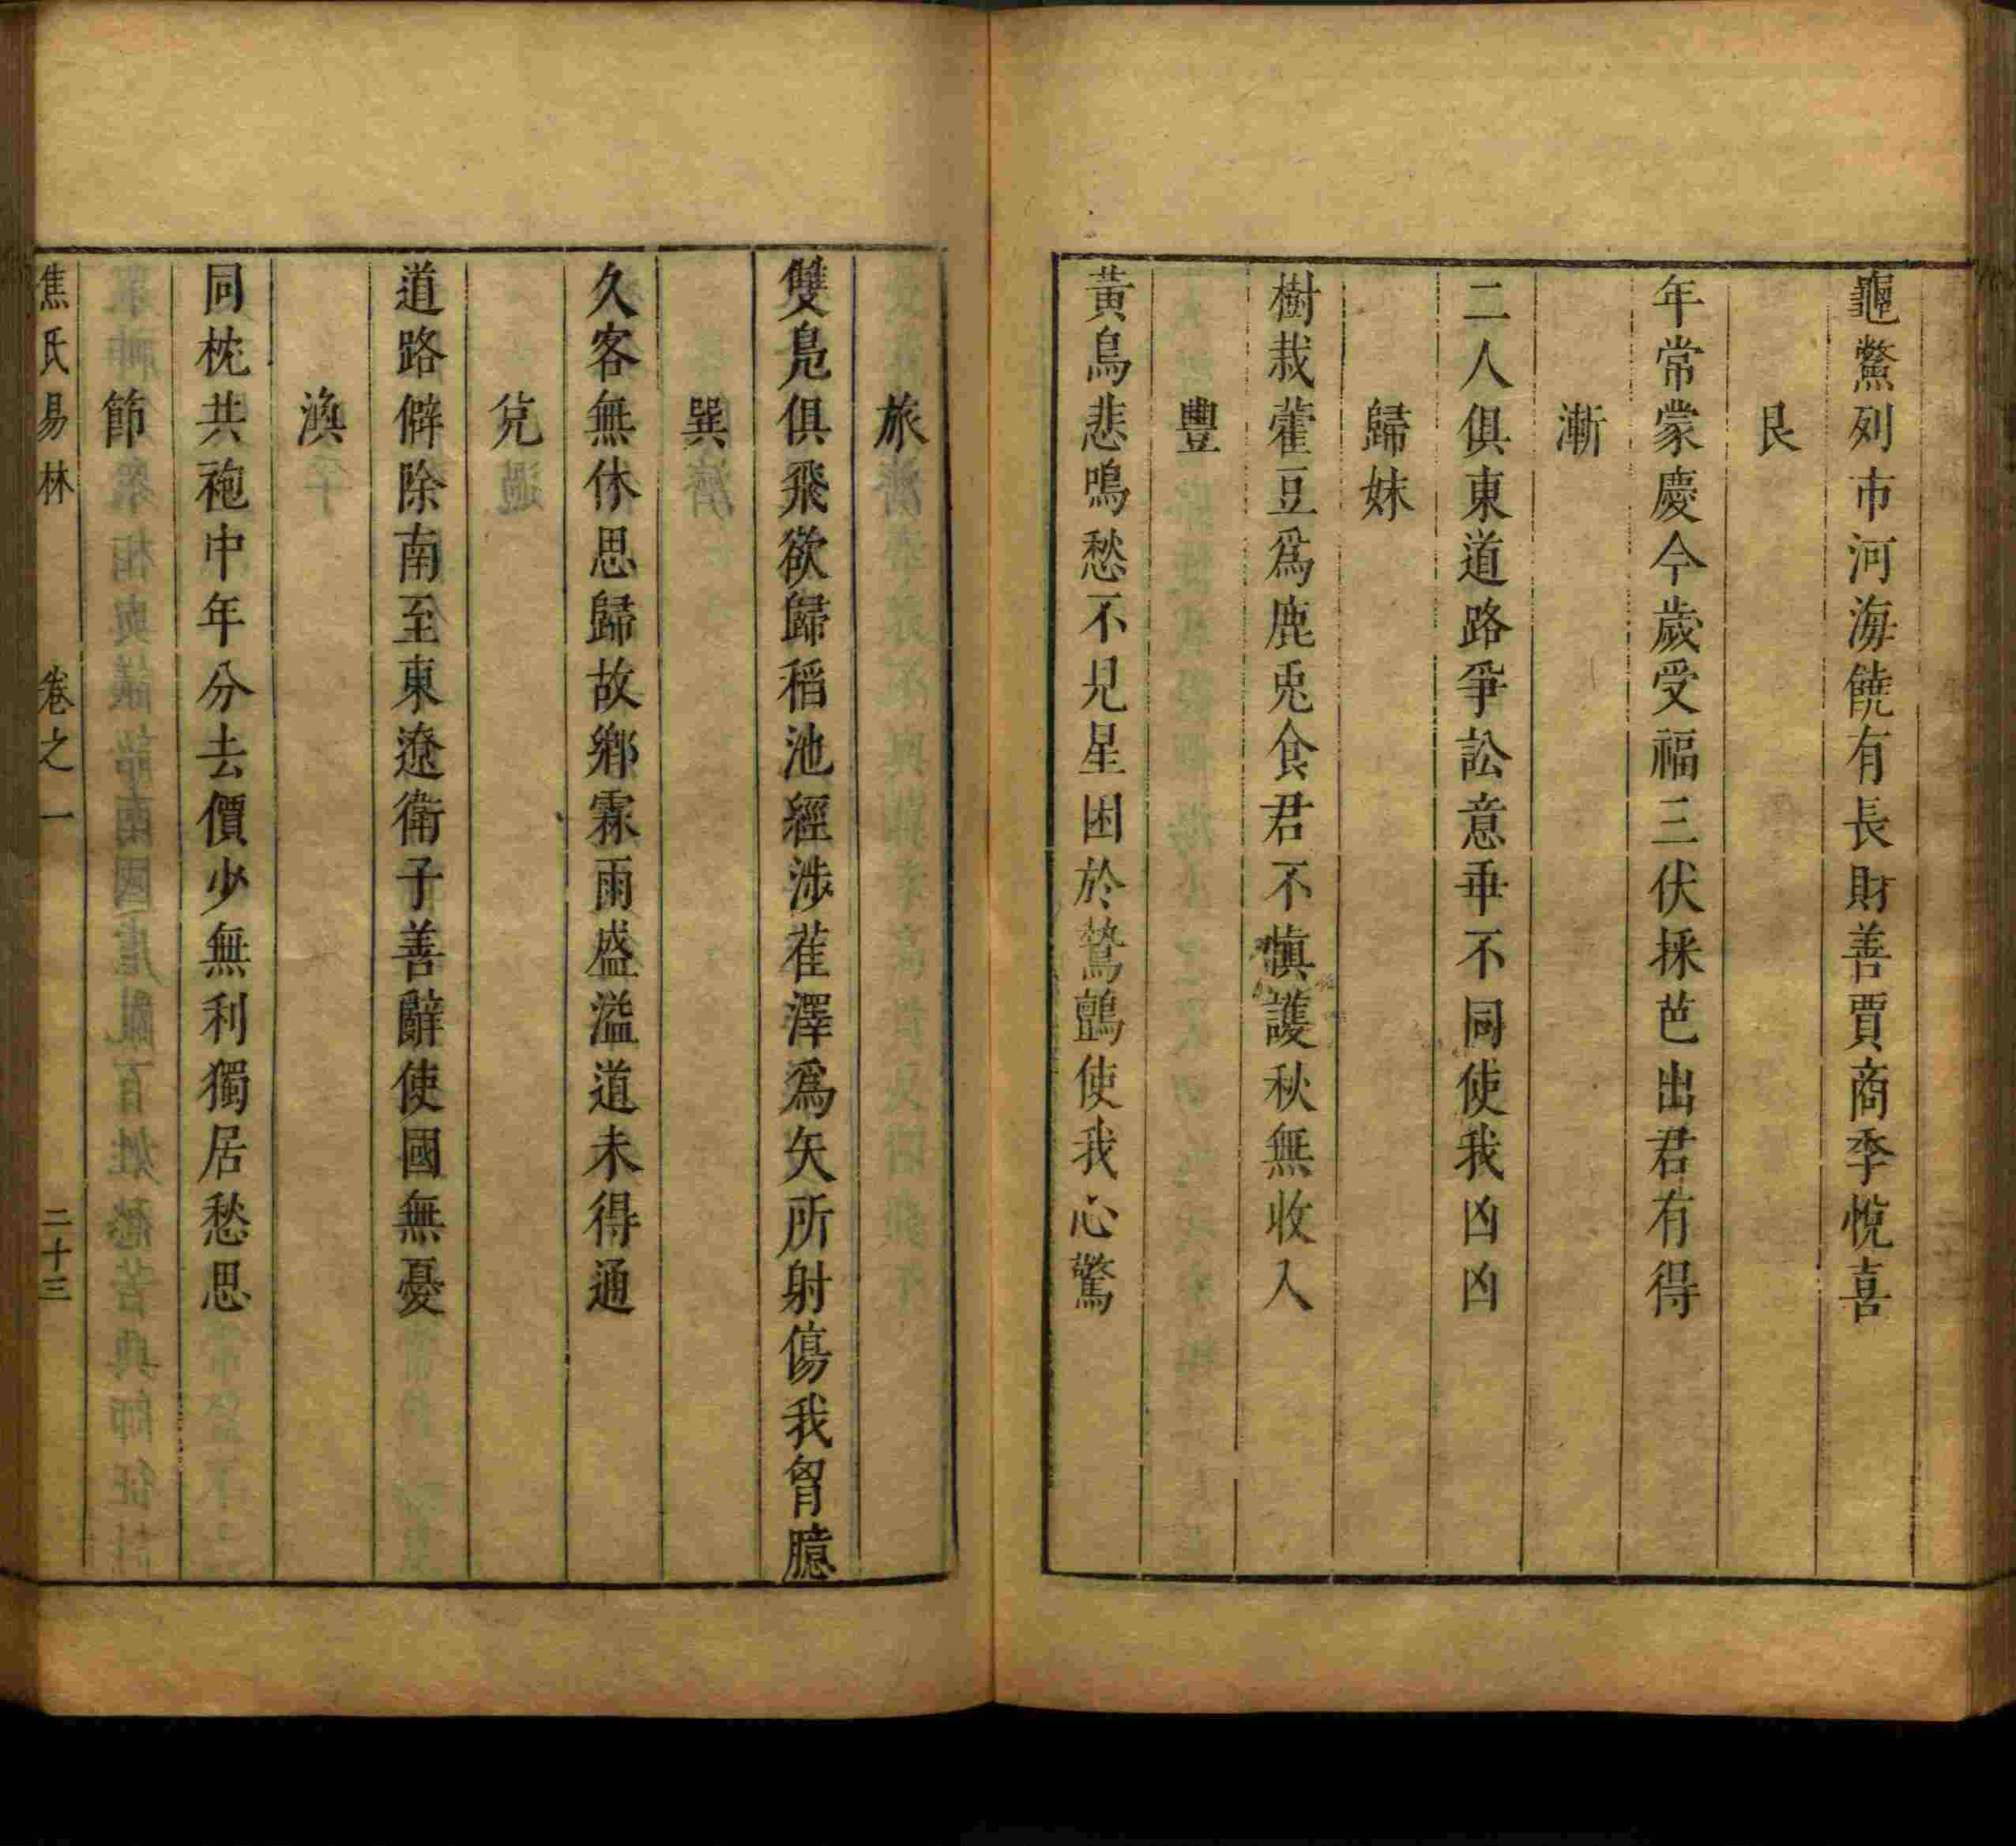 龜鱉列市河海饒有長財善賈商季悅喜
艮
年常蒙慶今歲受福三伏採芭出君有得
漸
二人俱東道路爭訟意乖不同使我凶凶
歸妹
樹栽藿豆爲鹿兎食君不慎護秋無收入
豐
黃鳥悲鳴愁不見星困於鷙鸇使我心驚
旅
雙鳬俱飛欲歸稻池經涉萑澤爲矢所射傷我胷臆
巽
久客無休思歸故鄉霖雨盛溢道未得通
兌
道路僻除南至東遼衛子善辭使國無憂
渙
同枕共袍中年分去價少無利獨居愁思
節
焦氏易林 卷之一 二十三